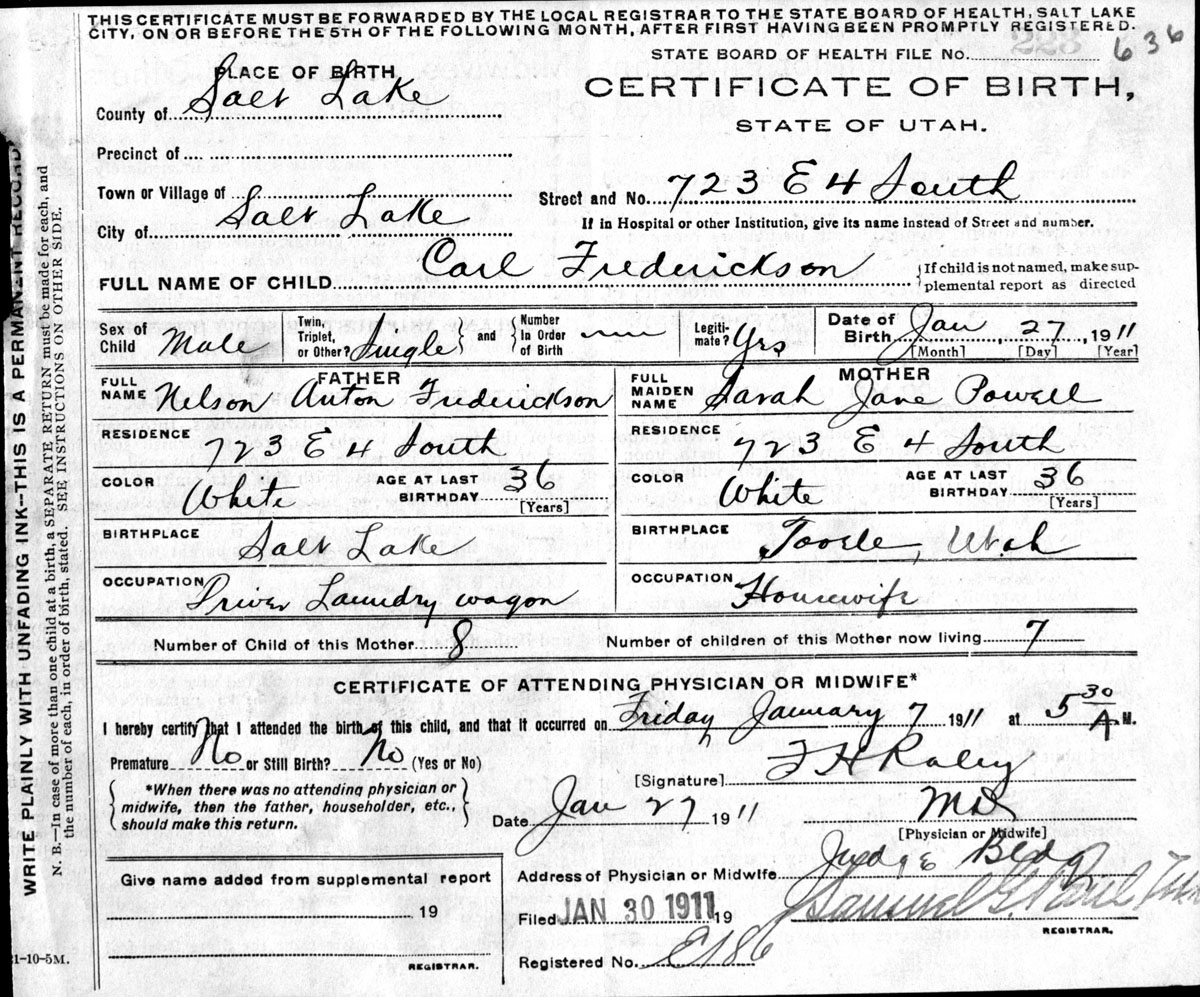 THIS CERTIFICATE MUST BE FORWARDED BY THE LOCAL REGISTRAR TO THE STATE BOARD OF HEALTH, SALT LAKE
CITY, ON OR BEFORE THE 5TH OF THE FOLLOWING MONTH, AFTER FIRST HAVING BEEN PROMPTLY REGISTERED.
STATE BOARD OF HEALTH FILE No. 636
PLACE OF BIRTH
CERTIFICATE OF BIRTH,
STATE OF UTAH.
County of Salt Lake
Precinct of
Town or Village of
Street and No. 723 E 4 South
City of Salt Lake
If in Hospital or other Institution, give its name instead of Street and number.
FULL NAME OF CHILD Carl Frederickson
If child is not named, make sup-
plemental report as directed
Sex of Child Male
Twin, Triplet, or Other? Single and
Number In Order of Birth
Legiti-mate? Yrs
Date of Birth Jan 27, 1911
[Month] [Day] [Year]
FATHER
FULL NAME Nelson Anton Frederickson
RESIDENCE 723 E 4 South
COLOR White
AGE AT LAST BIRTHDAY 36
[Years]
BIRTHPLACE Salt Lake
OCCUPATION Driver Laundry wagon
MOTHER
FULL MAIDEN NAME Sarah Jane Powell
RESIDENCE 723 E 4 South
COLOR White
AGE AT LAST BIRTHDAY 36
[Years]
BIRTHPLACE Tooele, Utah
OCCUPATION Housewife
Number of Child of this Mother 8
Number of children of this Mother now living 7
CERTIFICATE OF ATTENDING PHYSICIAN OR MIDWIFE*
I hereby certify that I attended the birth of this child, and that it occurred on Friday January 7 1911 at 5 30 A. M.
Premature No or Still Birth? No (Yes or No)
[Signature] F H Raley
*When there was no attending physician or
midwife, then the father, householder, etc.,
should make this return.
Date Jan 27 1911
MD
[Physician or Midwife]
Address of Physician or Midwife Judge Bldg
Give name added from supplemental report
19
REGISTRAR.
Filed JAN 30 1911 19
Samuel G. Paul
REGISTRAR.
Registered No. E186
1-10-5M.
WRITE PLAINLY WITH UNFADING INK—THIS IS A PERMANENT RECORD.
N. B.—In case of more than one child at a birth, a SEPARATE RETURN must be made for each, and
the number of each, in order of birth, stated. SEE INSTRUCTIONS ON OTHER SIDE.